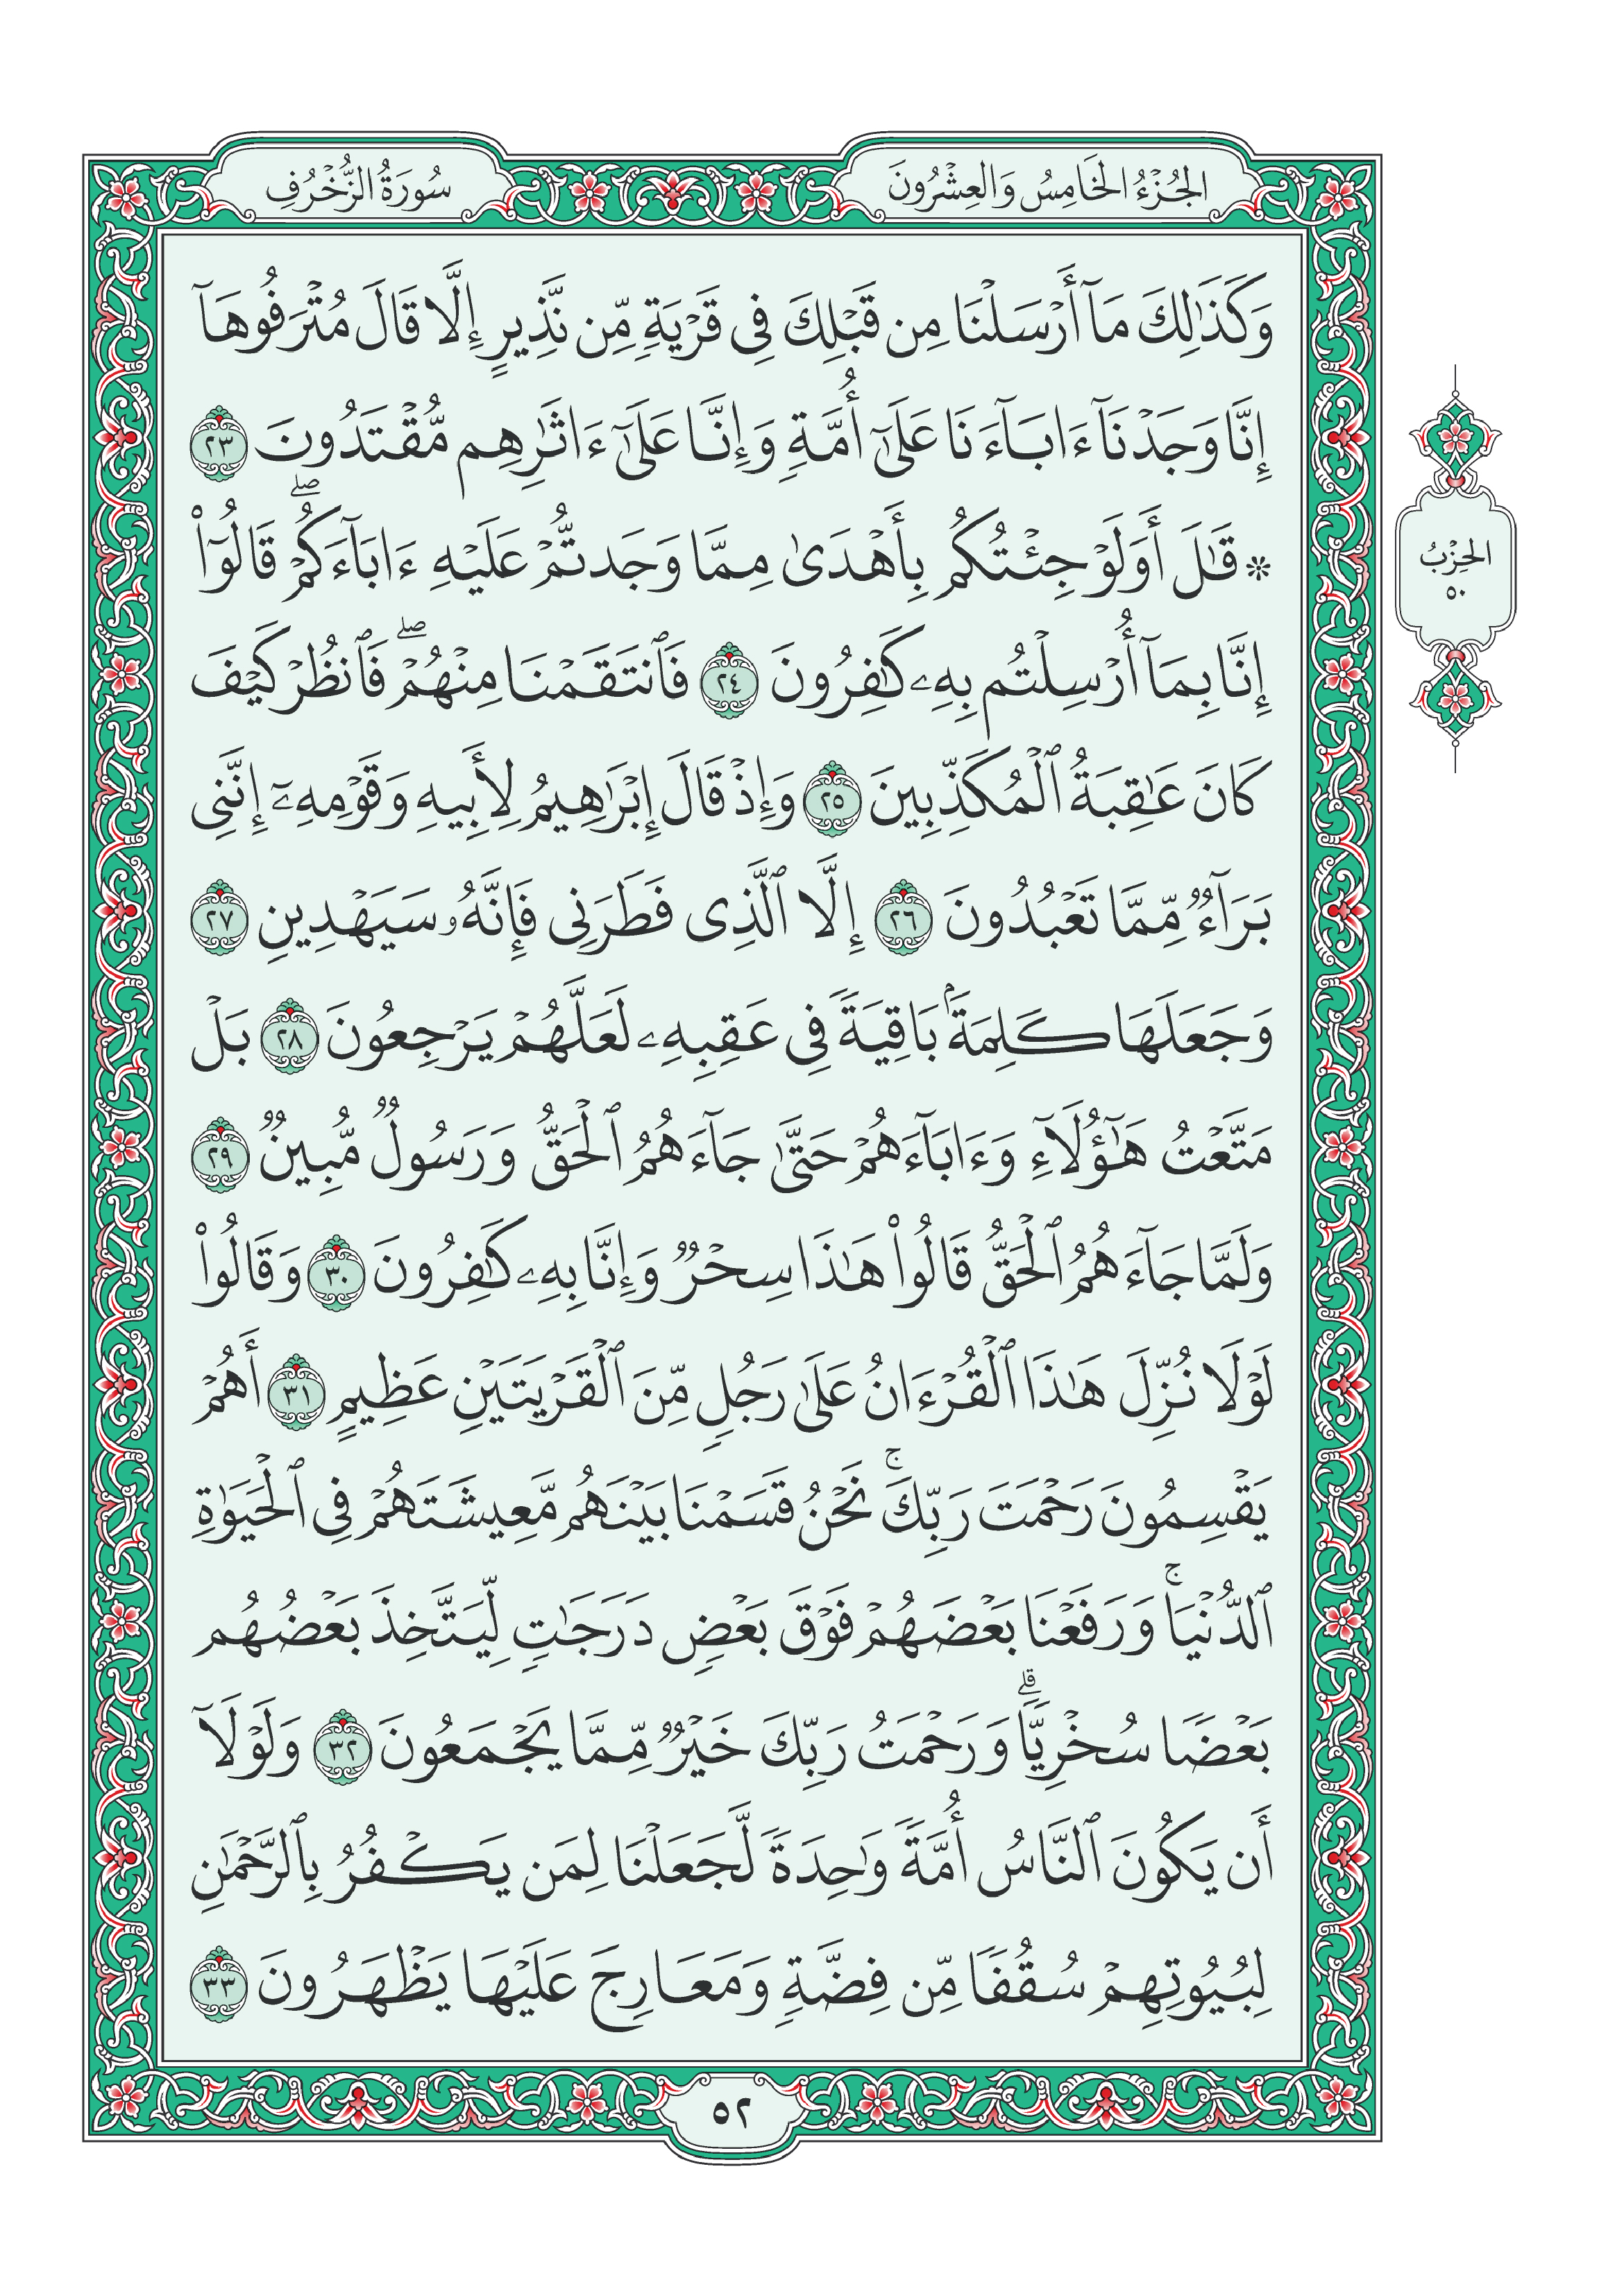 الجُزْءُ الخَامِسُ وَالعِشْرُونَ
سُورَةُ الزُّخْرُفِ
وَكَذَٰلِكَ مَآ أَرْسَلْنَا مِن قَبْلِكَ فِى قَرْيَةٍ مِّن نَّذِيرٍ إِلَّا قَالَ مُتْرَفُوهَآ
إِنَّا وَجَدْنَآ ءَابَآءَنَا عَلَىٰٓ أُمَّةٍ وَإِنَّا عَلَىٰٓ ءَاثَٰرِهِم مُّقْتَدُونَ ٢٣
۞ قَٰلَ أَوَلَوْ جِئْتُكُم بِأَهْدَىٰ مِمَّا وَجَدتُّمْ عَلَيْهِ ءَابَآءَكُمْ ۖ قَالُوٓا۟
إِنَّا بِمَآ أُرْسِلْتُم بِهِۦ كَٰفِرُونَ ٢٤ فَٱنتَقَمْنَا مِنْهُمْ ۖ فَٱنظُرْ كَيْفَ
كَانَ عَٰقِبَةُ ٱلْمُكَذِّبِينَ ٢٥ وَإِذْ قَالَ إِبْرَٰهِيمُ لِأَبِيهِ وَقَوْمِهِۦٓ إِنَّنِى
بَرَآءٌ مِّمَّا تَعْبُدُونَ ٢٦ إِلَّا ٱلَّذِى فَطَرَنِى فَإِنَّهُۥ سَيَهْدِينِ ٢٧
وَجَعَلَهَا كَلِمَةَۢ بَاقِيَةً فِى عَقِبِهِۦ لَعَلَّهُمْ يَرْجِعُونَ ٢٨ بَلْ
مَتَّعْتُ هَٰٓؤُلَآءِ وَءَابَآءَهُمْ حَتَّىٰ جَآءَهُمُ ٱلْحَقُّ وَرَسُولٌ مُّبِينٌ ٢٩
وَلَمَّا جَآءَهُمُ ٱلْحَقُّ قَالُوا۟ هَٰذَا سِحْرٌ وَإِنَّا بِهِۦ كَٰفِرُونَ ٣٠ وَقَالُوا۟
لَوْلَا نُزِّلَ هَٰذَا ٱلْقُرْءَانُ عَلَىٰ رَجُلٍ مِّنَ ٱلْقَرْيَتَيْنِ عَظِيمٍ ٣١ أَهُمْ
يَقْسِمُونَ رَحْمَتَ رَبِّكَ ۚ نَحْنُ قَسَمْنَا بَيْنَهُم مَّعِيشَتَهُمْ فِى ٱلْحَيَوٰةِ
ٱلدُّنْيَا ۚ وَرَفَعْنَا بَعْضَهُمْ فَوْقَ بَعْضٍ دَرَجَٰتٍ لِّيَتَّخِذَ بَعْضُهُم
بَعْضًا سُخْرِيًّا ۗ وَرَحْمَتُ رَبِّكَ خَيْرٌ مِّمَّا يَجْمَعُونَ ٣٢ وَلَوْلَآ
أَن يَكُونَ ٱلنَّاسُ أُمَّةً وَٰحِدَةً لَّجَعَلْنَا لِمَن يَكْفُرُ بِٱلرَّحْمَٰنِ
لِبُيُوتِهِمْ سُقُفًا مِّن فِضَّةٍ وَمَعَارِجَ عَلَيْهَا يَظْهَرُونَ ٣٣
الحِزْبُ
٥٠
٥٢